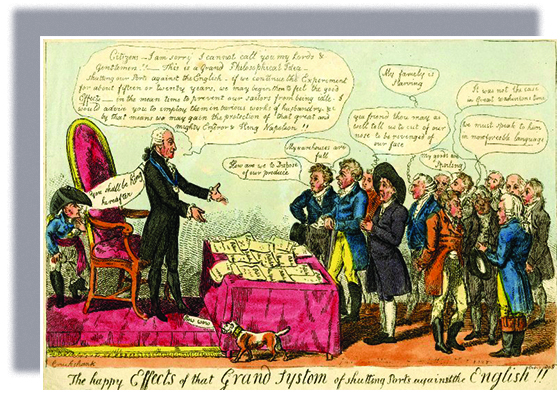 Citizens - I am sorry I cannot call you my Lords &
Gentlemen!! - This is a Grand Philosophical Idea -
shutting our Ports against the English - if we continue the Experiment
for about fifteen or twenty years, we may begin to feel the good
Effects - in the mean time to prevent our sailors from being idle - I
would advise you to employ them in various works of husbandry &c
by that means we may gain the protection of that great and
mighty Emperor & King Napolion!!
My family is
Starving
It was not the case
in Great Washintons time
you friend thou mayst as
well tell us to cut of our
nose to be revenged of
our face
we must speak to him
in more forcible language
My warehouses are
full
My goods are
Spoiling
How are we to Dispose
of our produce
You shall be King
hereafter
Cruikshank
The happy Effects of that Grand Systom of shutting Ports against the English!!